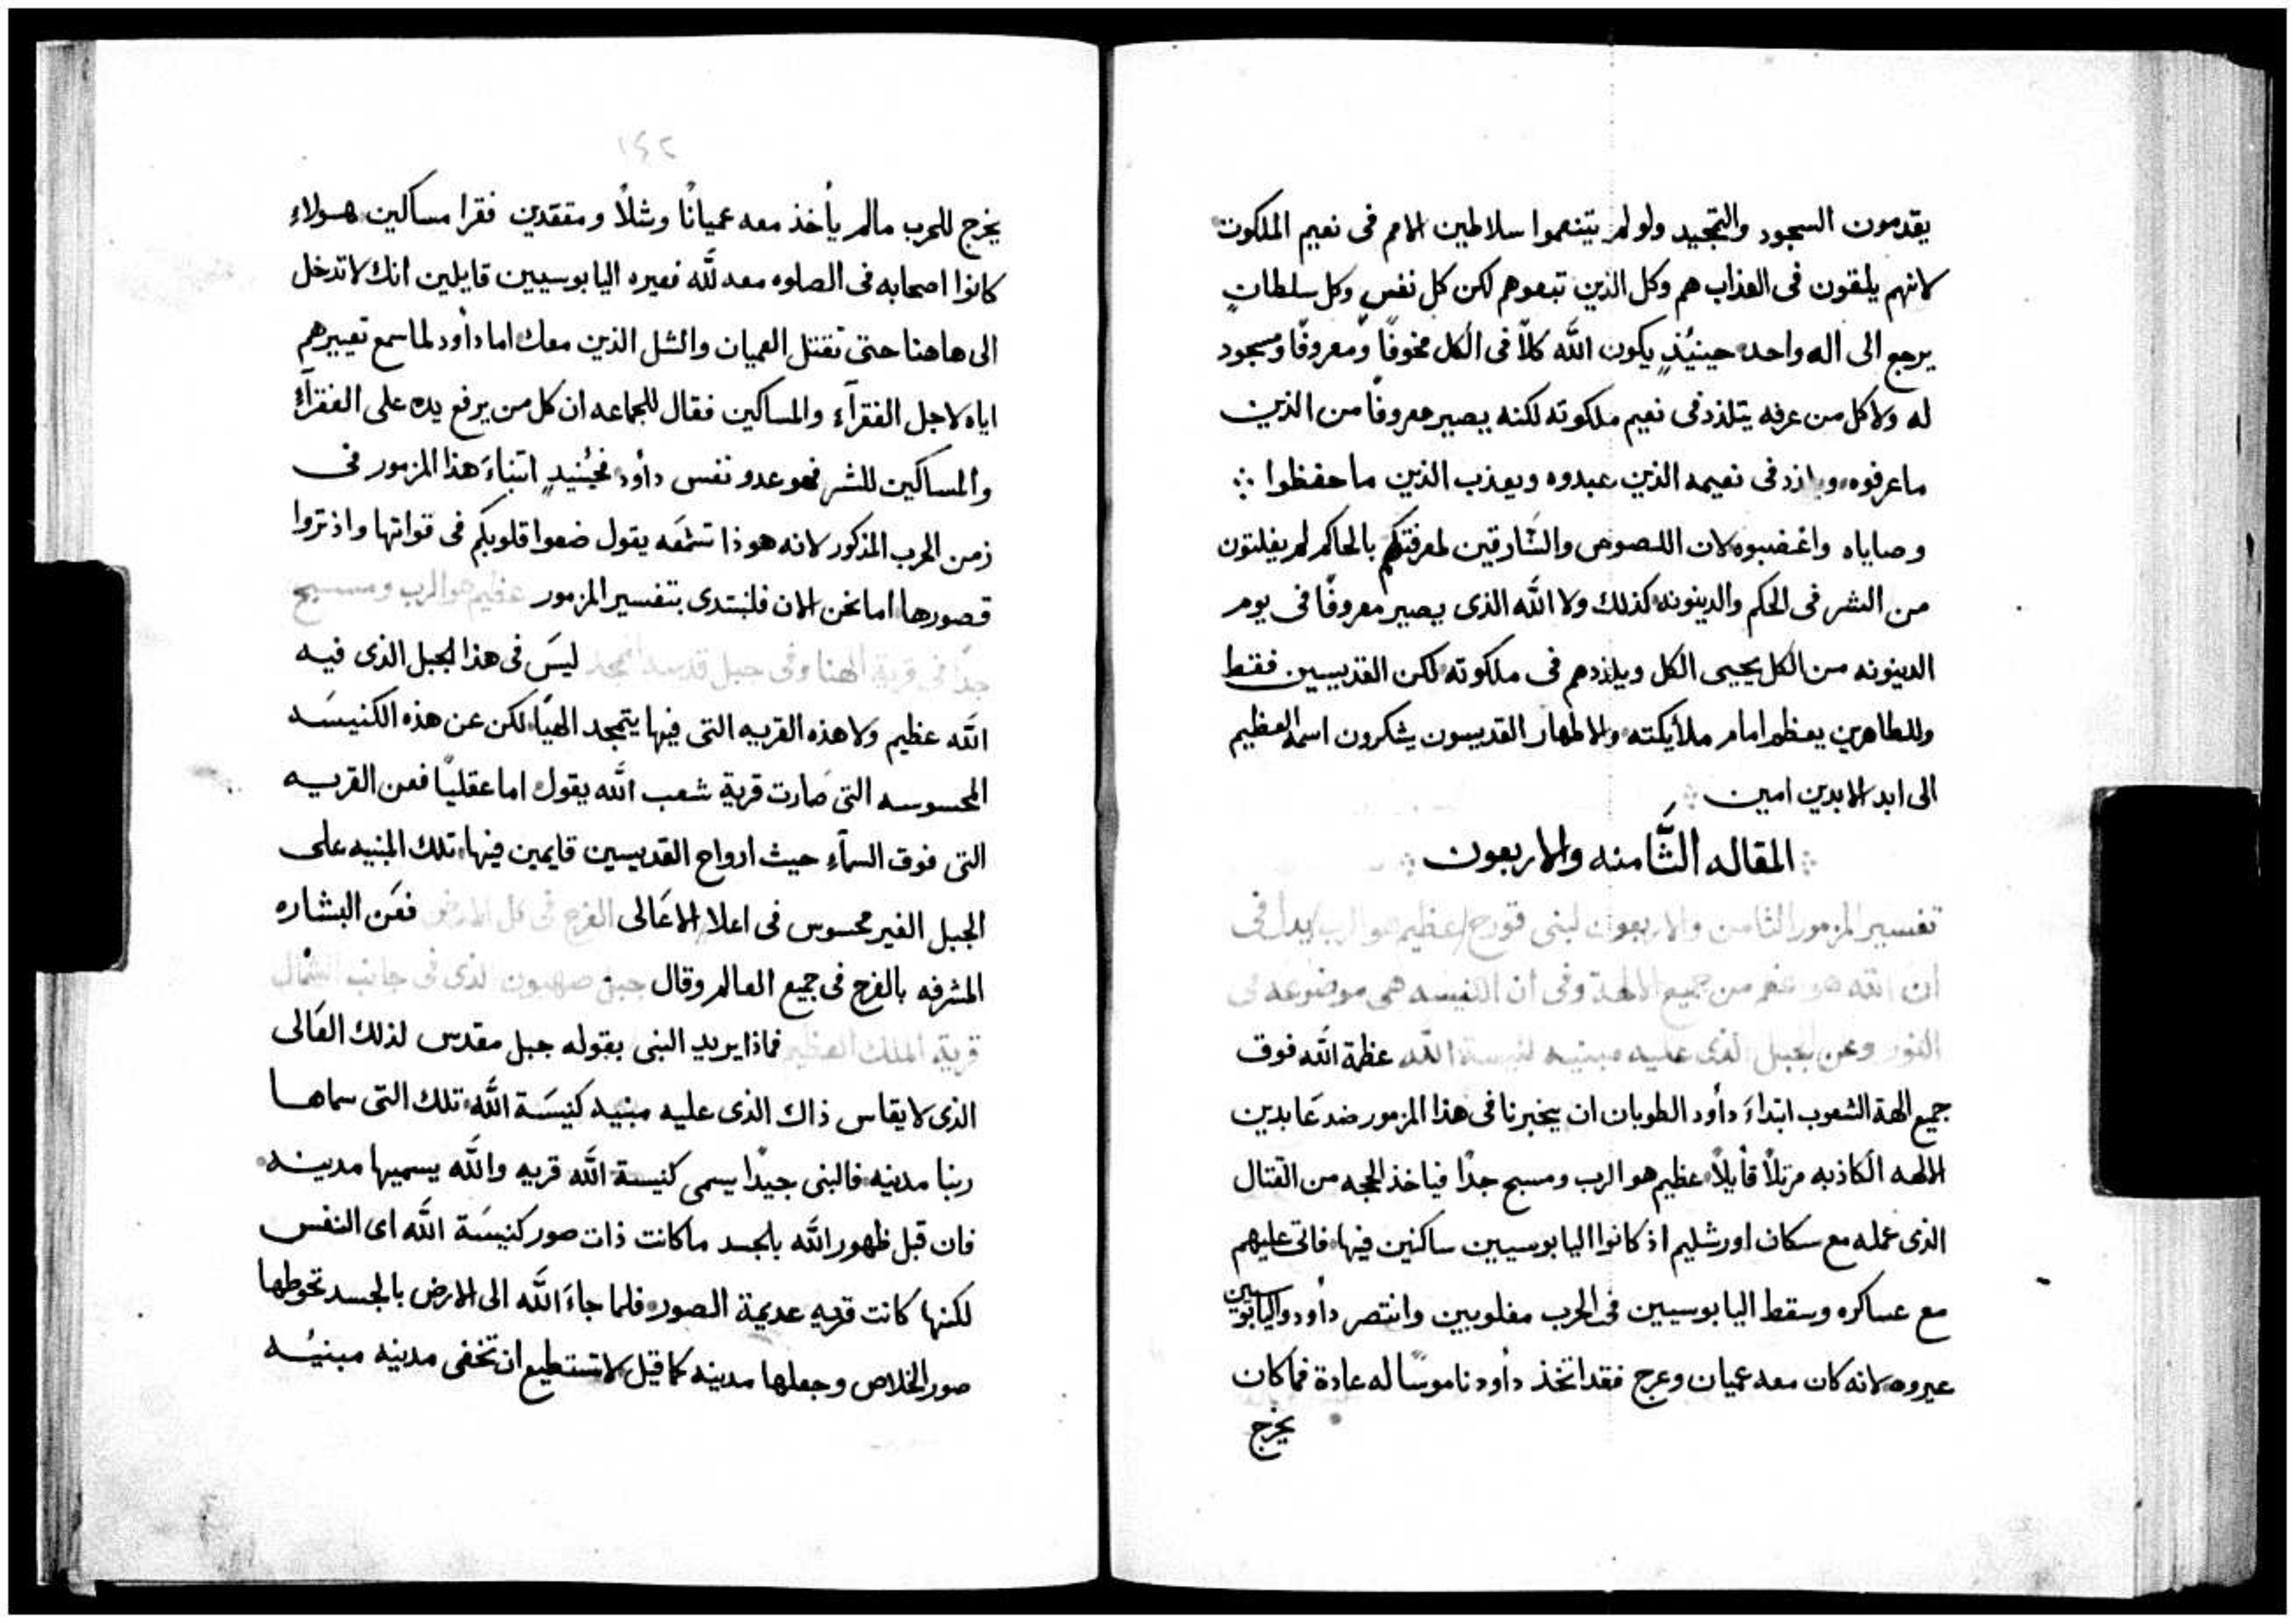 يقدمون السجود والتمجيد ولو لم يتنعموا سلاطين الامم فى نعيم الملكوت
لانهم يلقون فى العذاب هم وكل الذين تبعوهم لكن كل نفسٍ وكل سلطانٍ
يرجع الى اله واحد حينيُذٍ يكون اللَّه كلاًّ فى الكل مخوفًا ومعروفًا ومسجود
له ولا كل من عرفه يتلذذ فى نعيم ملكوته لكنه يصير معروفًا من الذين
ما عرفوه فى نعيمه الذين عبدوه ويعذب الذين ما حفظوا
وصاياه واغضبوه لان اللصوص والسَّارقين لمعرفتكم بالحاكم لم يفلتون
من الشر فى الحكم والدينونه كذلك ولا اللَّه الذى يصير معروفًا فى يوم
الدينونه من الكل يحيى الكل ويلذذهم فى ملكوته لكن القديسين فقط
وللطاهرين يعظم امام ملايكته والاطهار القديسون يشكرون اسمه العظيم
الى ابد الابدين امين
المقاله الثَّامنه والاربعون
تفسير المزمور الثامن والاربعون لبنى قورح عظيم هو الرب يدل فى
ان اللَّه هو من جميع الالهة وفى ان الكنيسه هى موضوعه فى
النور وعن الجبل الذى عليه مبنيه كنيسة اللَّه عظمة اللَّه فوق
جميع الهة الشعوب ابتداءَ داود الطوبان ان يخبرنا فى هذا المزمور ضد عَابدين
الالهه الكاذبه مرتلاً قأيلاً عظيم هو الرب ومسبح جدًا فياخذ الحجه من القتال
الذى عمله مع سكان اورشليم اذ كانوا اليابوسيين ساكنين فيها فاتى عليهم
مع عساكره وسقط اليابوسيين فى الحرب مغلوبين وانتصر داود واليابوسيين
عيروه لانه كان معه عميان وعرج فقد اتخذ داود ناموسًا له عادة فما كان
يخرج
١٤٢
يخرج للحرب مالم يأخذ معه عميانًا وشلاً ومقعدين فقرا مساكين هولاءِ
كانوا اصحابه فى الصلوه معه للَّه فعيره اليابوسيين قايلين انك لا تدخل
الى هاهنا حتى تقتل العميان والشل الذين معك اما داود لما سمع تعييرهم
اياه لاجل الفقرآءِ والمساكين فقال للجماعه ان كل من يرفع يده على الفقرآءِ
والمساكين للشر فهو عدو نفس داود فحينيُذٍ ابتداءَ هذا المزمور فى
زمن الحرب المذكور لانه هوذا تسمَعه يقول ضعوا قلوبكم فى قواتها واذتروا
قصورها اما نحن الان فلنبتدى بتفسير المزمور عظيم هو الرب ومسبح
جدًا فى قرية الهنا وفى جبل قدسه ليسَ فى هذا الجبل الذى فيه
اللَّه عظيم ولا هذه القريه التى فيها يتمجد الهيًا لكن عن هذه الكنيسَه
المحسوسه التى صَارت قرية شعب اللَّه يقول اما عقليًا فعن القريه
التى فوق السمآءِ حيث ارواح القديسين قايمين فيها تلك المبنيه على
الجبل الغير محسوس فى اعلا الاعَالى الفرح فى كل الارض فعَن البشاره
المشرفه بالفرح فى جميع العالم وقال جبل صهيون الذى فى جانب الشمال
قرية الملك العظيم فماذا يريد النبى بقوله جبل مقدس لذلك العَالى
الذى لا يقاس ذاك الذى عليه مبنيه كنيسَة اللَّه تلك التى سماها
ربنا مدينه فالنبى جيدًا يسمى كنيسة اللَّه قريه واللَّه يسميها مدينه
فان قبل ظهور اللَّه بالجسد ما كانت ذات صور كنيسَة اللَّه اى النفس
لكنها كانت قريه عديمة الصور فلما جاءَ اللَّه الى الارض بالجسد تحوطها
صور الخلاص وجعلها مدينه كما قيل لا تستطيع ان تخفى مدينه مبنيُه